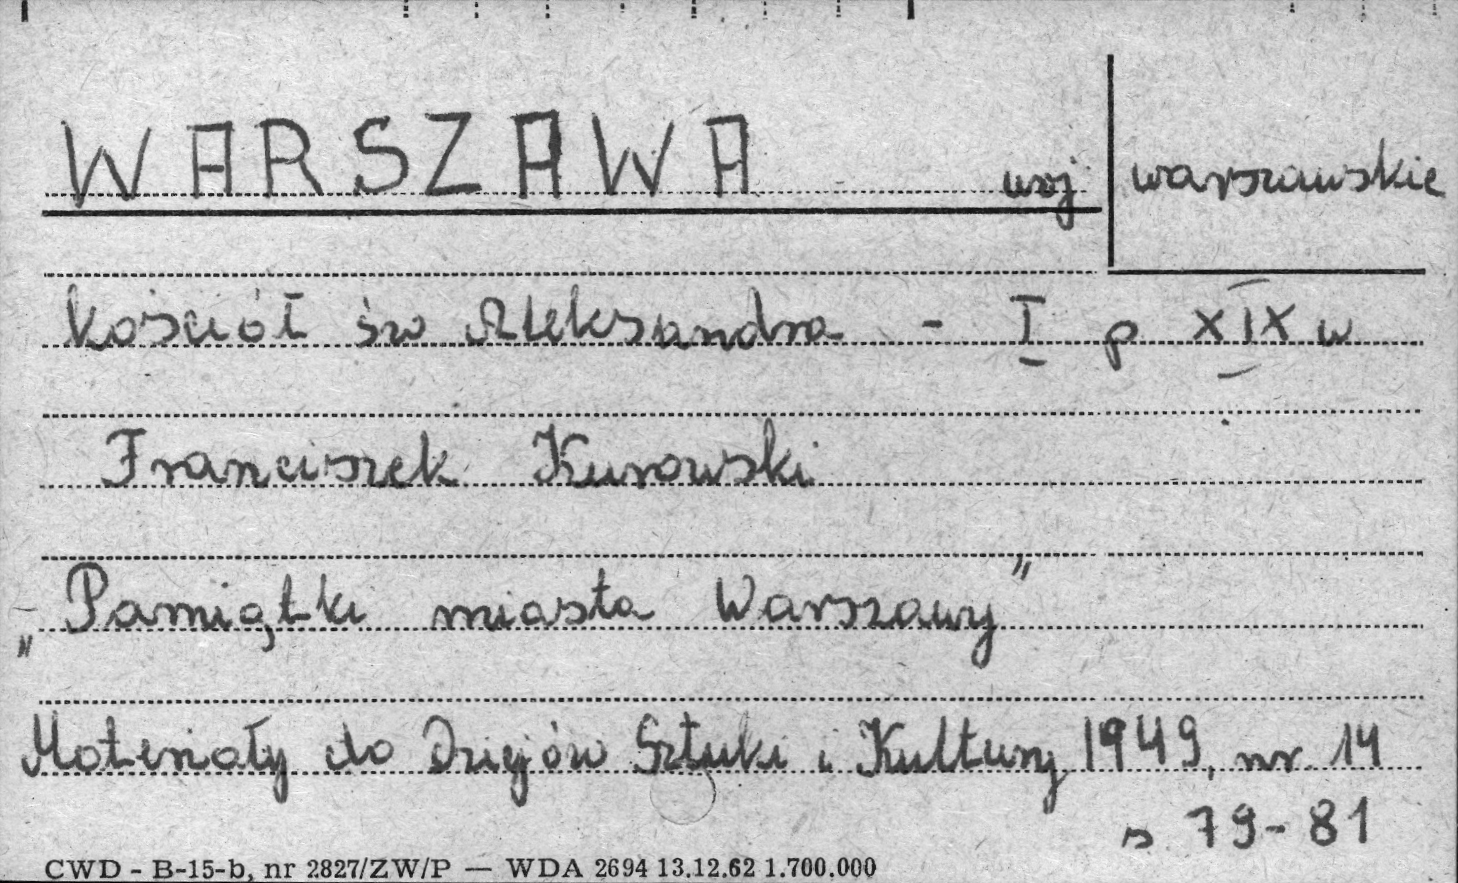 WARSZAWA woj warszawskie
kościół św Aleksandra - I p XIX w
Franciszek Kurowski
„Pamiątki miasta Warszawy”
Materiały do Dziejów Sztuki i Kultury 1949, nr. 14
s 79-81
CWD - B-15-b, nr 2827/ZW/P — WDA 2694 13.12.62 1.700.000